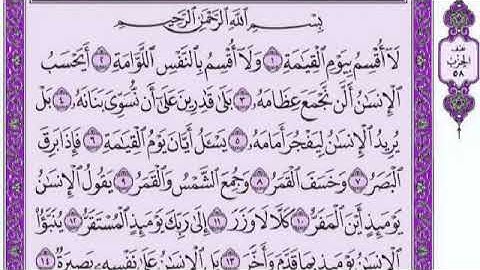 بِسْمِ ٱللَّهِ ٱلرَّحْمَٰنِ ٱلرَّحِيمِ
لَآ أُقْسِمُ بِيَوْمِ ٱلْقِيَٰمَةِ ١ وَلَآ أُقْسِمُ بِٱلنَّفْسِ ٱللَّوَّامَةِ ٢ أَيَحْسَبُ
ٱلْإِنسَٰنُ أَلَّن نَّجْمَعَ عِظَامَهُۥ ٣ بَلَىٰ قَٰدِرِينَ عَلَىٰٓ أَن نُّسَوِّىَ بَنَانَهُۥ ٤ بَلْ
يُرِيدُ ٱلْإِنسَٰنُ لِيَفْجُرَ أَمَامَهُۥ ٥ يَسْـَٔلُ أَيَّانَ يَوْمُ ٱلْقِيَٰمَةِ ٦ فَإِذَا بَرِقَ
ٱلْبَصَرُ ٧ وَخَسَفَ ٱلْقَمَرُ ٨ وَجُمِعَ ٱلشَّمْسُ وَٱلْقَمَرُ ٩ يَقُولُ ٱلْإِنسَٰنُ
يَوْمَئِذٍ أَيْنَ ٱلْمَفَرُّ ١٠ كَلَّا لَا وَزَرَ ١١ إِلَىٰ رَبِّكَ يَوْمَئِذٍ ٱلْمُسْتَقَرُّ ١٢ يُنَبَّؤُا۟
ٱلْإِنسَٰنُ يَوْمَئِذٍۭ بِمَا قَدَّمَ وَأَخَّرَ ١٣ بَلِ ٱلْإِنسَٰنُ عَلَىٰ نَفْسِهِۦ بَصِيرَةٌ ١٤
نصف
الحزب
٥٨